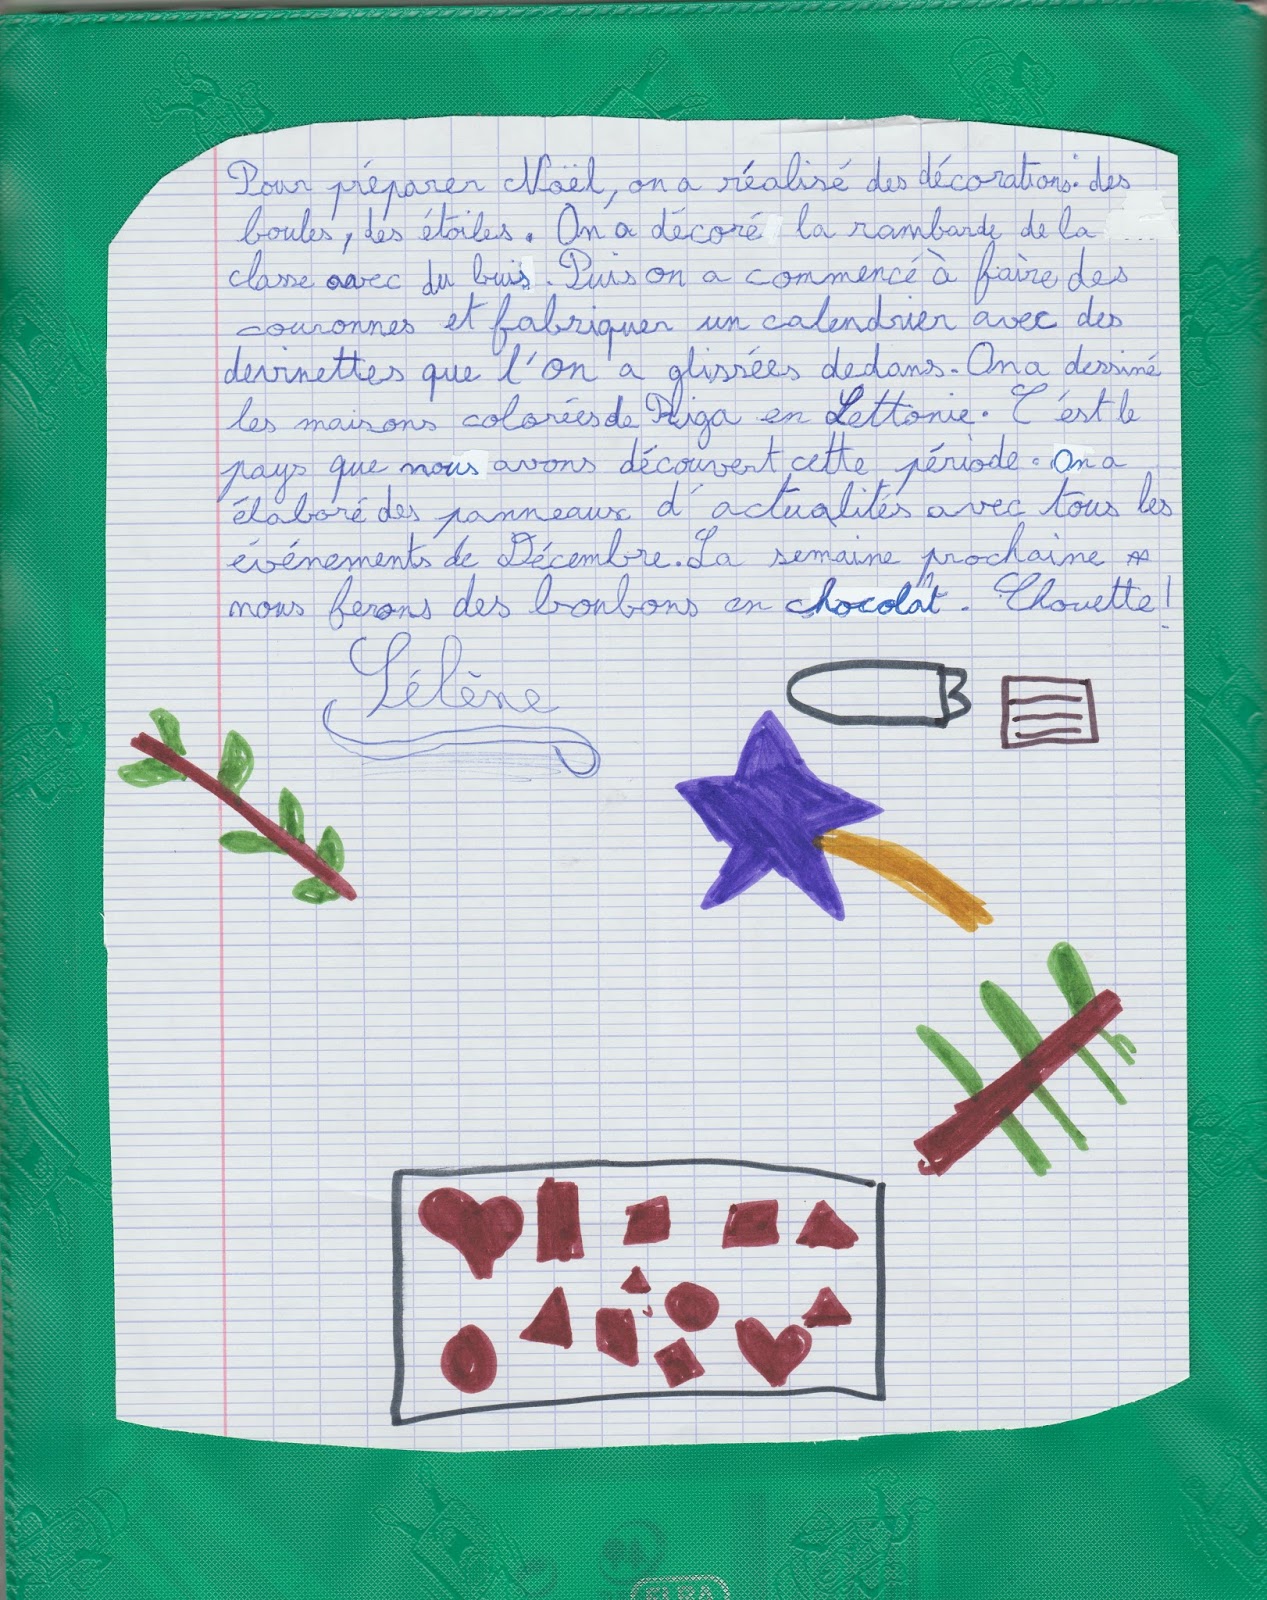 Pour préparer Noël, on a réalisé des décorations: des
boules, des étoiles. On a décoré la rambarde de la
classe avec du buis. Puis on a commencé à faire des
couronnes et fabriquer un calendrier avec des
devinettes que l'on a glissées dedans. On a dessiné
les maisons colorées de Riga en Lettonie. C'est le
pays que nous avons découvert cette période. On a
élaboré des panneaux d'actualités avec tous les
événements de Décembre. La semaine prochaine
nous ferons des bonbons en chocolat. Chouette!
Lélène
ELBA